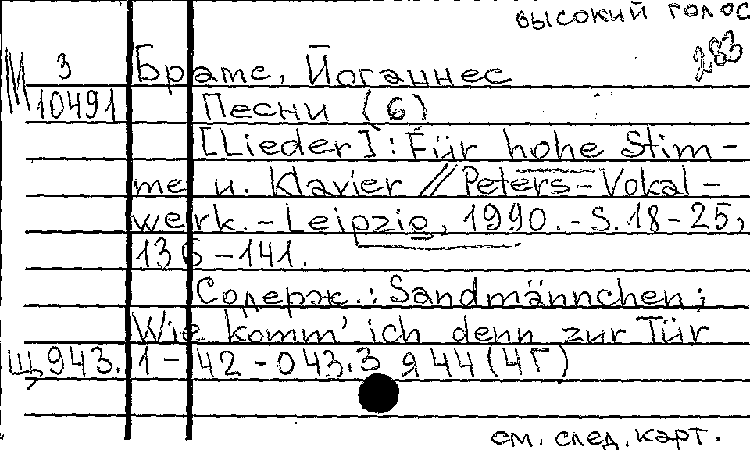 высокий голос
283
М 3
10491
Брамс, Йоганнес
Песни (6)
[Lieder]: Für hohe Stim-
me u. Klavier // Peters-Vokal-
werk. - Leipzig, 1990. - S. 18-25,
136-141.
Содерж.: Sandmännchen;
Wie komm' ich denn zur Tür
Щ943.1-42-043.3 я44(4Г)
см. след. карт.